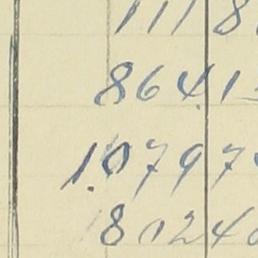 111 8
864.1
1.0797
80240